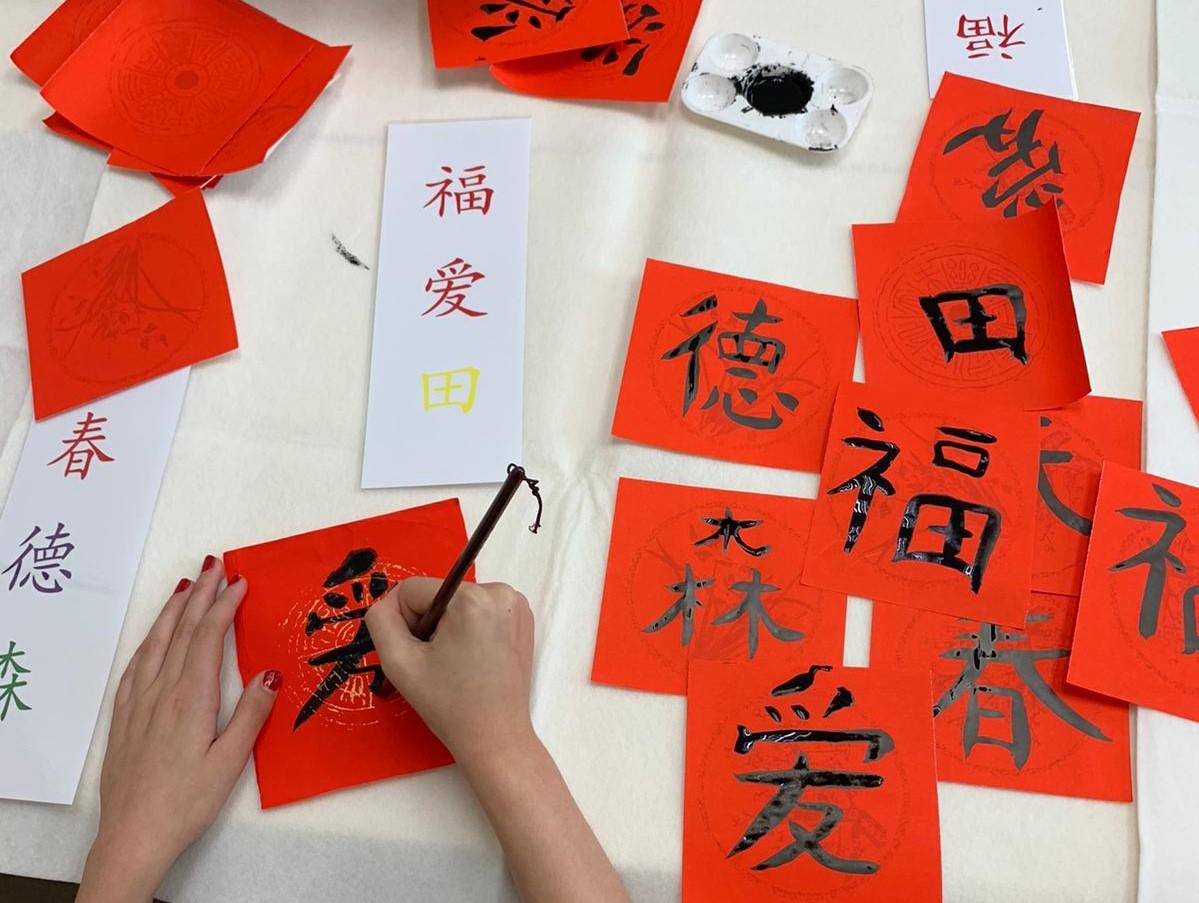 福
福
爱
田
春
德
森
德
田
福
森
春
爱